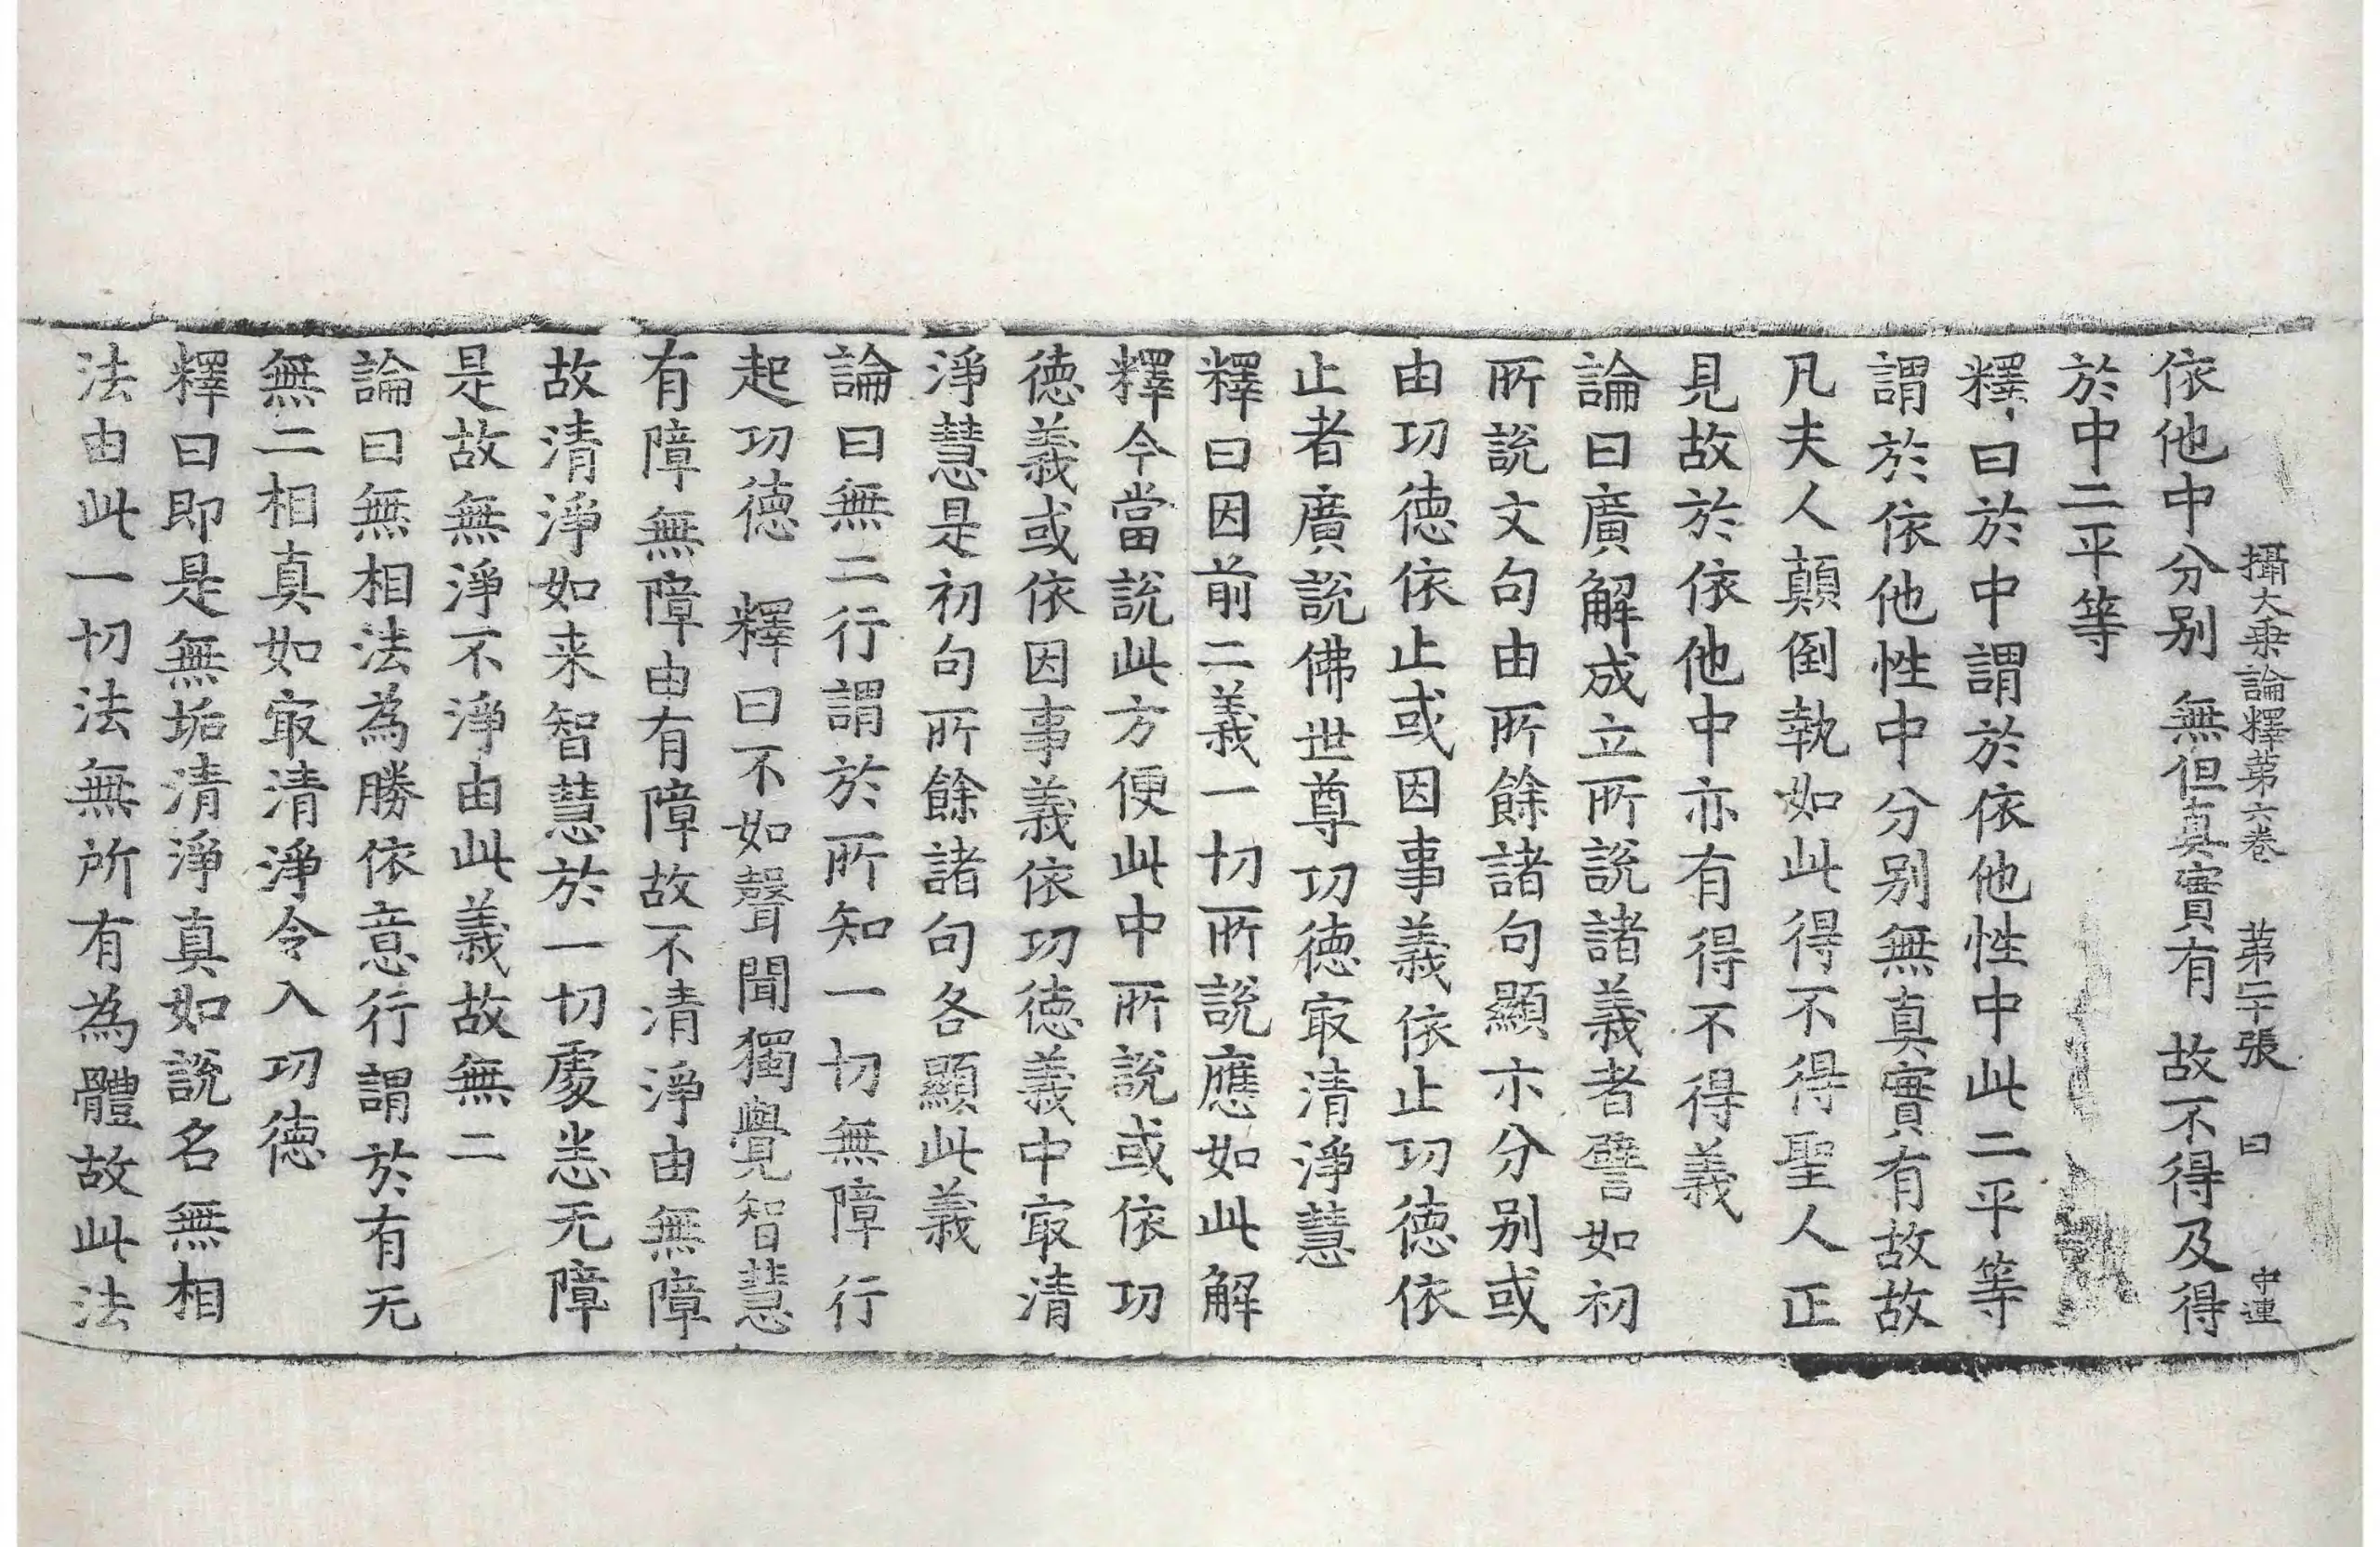 攝大乗論釋苐六卷 苐二十張 曰 中連
依他中分别 無但真實有 故不得及得
於中二平等
釋曰於中謂於依他性中此二平等
謂於依他性中分别無真實有故故
凡夫人顛倒執如此得不得聖人正
見故於依他中亦有得不得義
論曰廣解成立所說諸義者譬如初
所說文句由所餘諸句顯示分别或
由功徳依止或因事義依止功徳依
止者廣說佛世尊功徳㝡清淨慧
釋曰因前二義一切所說應如此解
釋今當說此方便此中所說或依功
徳義或依因事義依功徳義中㝡清
淨慧是初句所餘諸句各顯此義
論曰無二行謂於所知一切無障行
起功徳 釋曰不如聲聞獨覺智慧
有障無障由有障故不清淨由無障
故清淨如来智慧於一切處恙无障
是故無淨不淨由此義故無二
論曰無相法為勝依意行謂於有无
無二相真如㝡清淨令入功徳
釋曰即是無垢清淨真如說名無相
法由此一切法無所有為體故此法